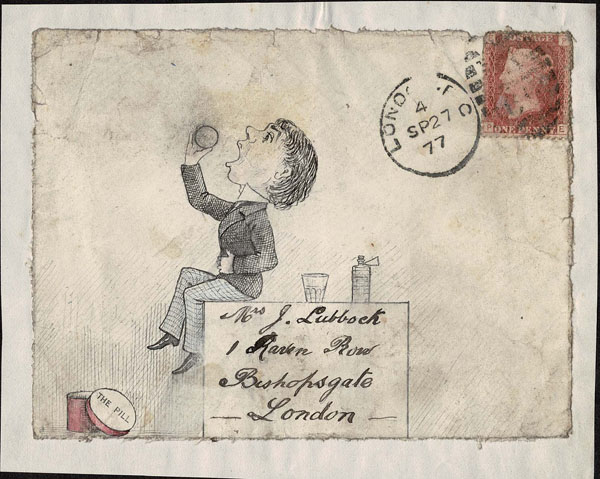 LONDON
4
SP27
77
ONE PENNY
Mrs J. Lubbock
1 Raven Row
Bishopsgate
— London —
THE PILL